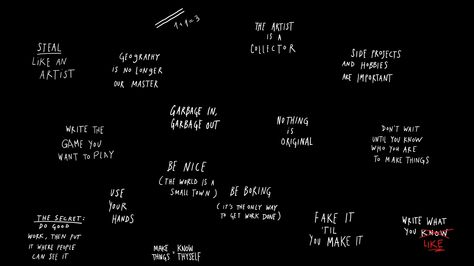 1+1=3
THE ARTIST
IS A
COLLECTOR
STEAL
LIKE AN
ARTIST
GEOGRAPHY
IS NO LONGER
OUR MASTER
SIDE PROJECTS
AND HOBBIES
ARE IMPORTANT
GARBAGE IN,
GARBAGE OUT
NOTHING
IS
ORIGINAL
WRITE THE
GAME YOU
WANT TO PLAY
DON'T WAIT
UNTIL YOU KNOW
WHO YOU ARE
TO MAKE THINGS
BE NICE
(THE WORLD IS A
SMALL TOWN)
USE
YOUR
HANDS
BE BORING
(IT'S THE ONLY WAY
TO GET WORK DONE)
THE SECRET:
DO GOOD
WORK, THEN PUT
IT WHERE PEOPLE
CAN SEE IT
FAKE IT
'TIL
YOU MAKE IT
WRITE WHAT
YOU KNOW
LIKE
MAKE KNOW
THINGS THYSELF